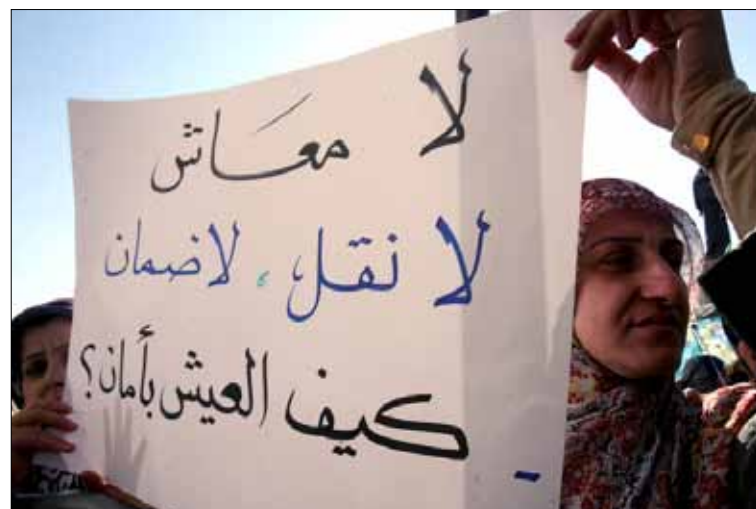 لا معاش
لا نقل، لا ضمان
كيف العيش بأمان؟
-